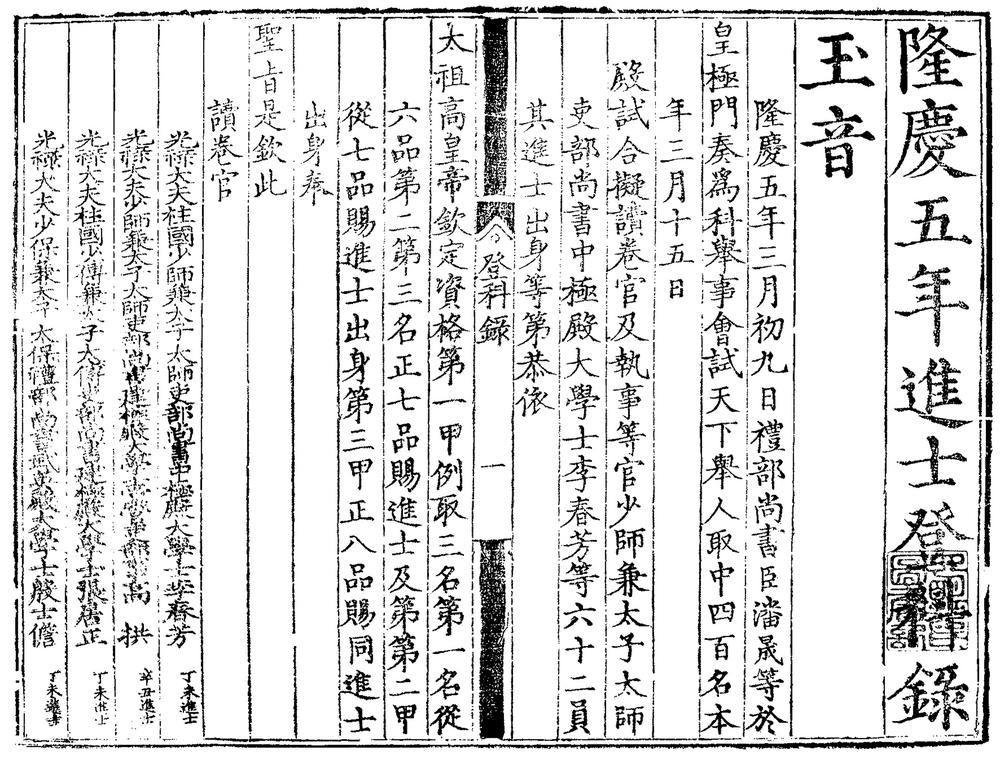 隆慶五年進士登科錄
玉音
隆慶五年三月初九日禮部尚書臣潘晟等於
皇極門奏爲科舉事會試天下舉人取中四百名本
年三月十五日
殿試合擬讀卷官及執事等官少師兼太子太師
吏部尚書中極殿大學士李春芳等六十二員
其進士出身等第恭依
登科錄
一
太祖高皇帝欽定資格第一甲例取三名第一名從
六品第二第三名正七品賜進士及第第二甲
從七品賜進士出身第三甲正八品賜同進士
出身奉
聖旨是欽此
讀卷官
光祿大夫柱國少師兼太子太師吏部尚書中極殿大學士李春芳 丁未進士
光祿大夫少師兼太子太師吏部尚書建極殿大學士高拱 辛丑進士
光祿大夫柱國少傅兼太子太傅吏部尚書建極殿大學士張居正 丁未進士
光祿大夫少保兼太子太保禮部尚書武英殿大學士殷士儋 丁未進士